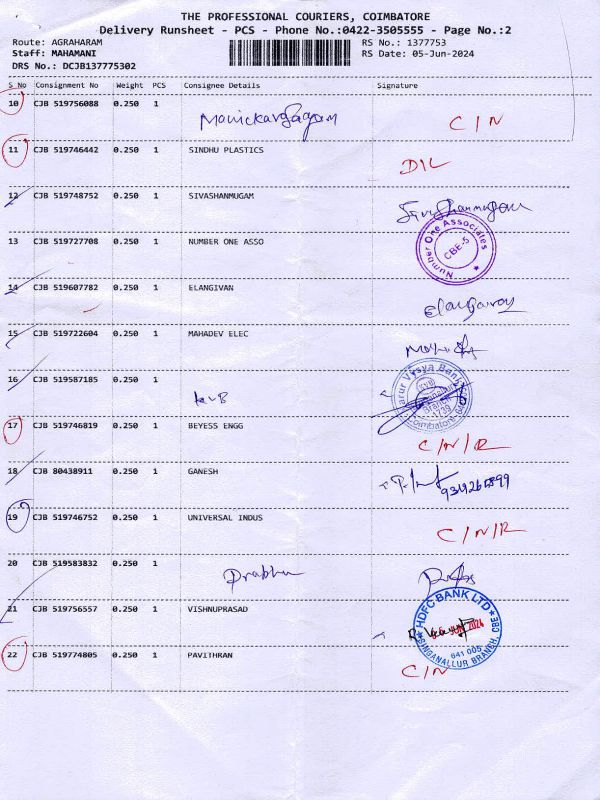 THE PROFESSIONAL COURIERS, COIMBATORE
Delivery Runsheet - PCS - Phone No.:0422-3505555 - Page No.:2
Route: AGRAHARAM RS No.: 1377753
Staff: MAHAMANI RS Date: 05-Jun-2024
DRS No.: DCJB137775302
S No Consignment No Weight PCS Consignee Details Signature
10 CJB 519756088 0.250 1 Manickavasagam C/N
11 CJB 519746442 0.250 1 SINDHU PLASTICS D/L
12 CJB 519748752 0.250 1 SIVASHANMUGAM
13 CJB 519727708 0.250 1 NUMBER ONE ASSO Number One Associates CBE-5
14 CJB 519607782 0.250 1 ELANGIVAN
15 CJB 519722604 0.250 1 MAHADEV ELEC
16 CJB 519587185 0.250 1 KVB Karur Vysya Bank KVB Branch 1739 Coimbatore
17 CJB 519746819 0.250 1 BEYESS ENGG C/N/R
18 CJB 80438911 0.250 1 GANESH
19 CJB 519746752 0.250 1 UNIVERSAL INDUS C/N/R
20 CJB 519583832 0.250 1 Prabhu
21 CJB 519756557 0.250 1 VISHNUPRASAD HDFC BANK LTD 2024 641 005 SINGANALLUR BRANCH, CBE
22 CJB 519774805 0.250 1 PAVITHRAN C/N